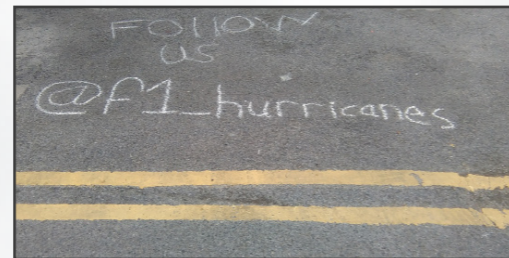 FOllOW
us
@f1_hurricanes